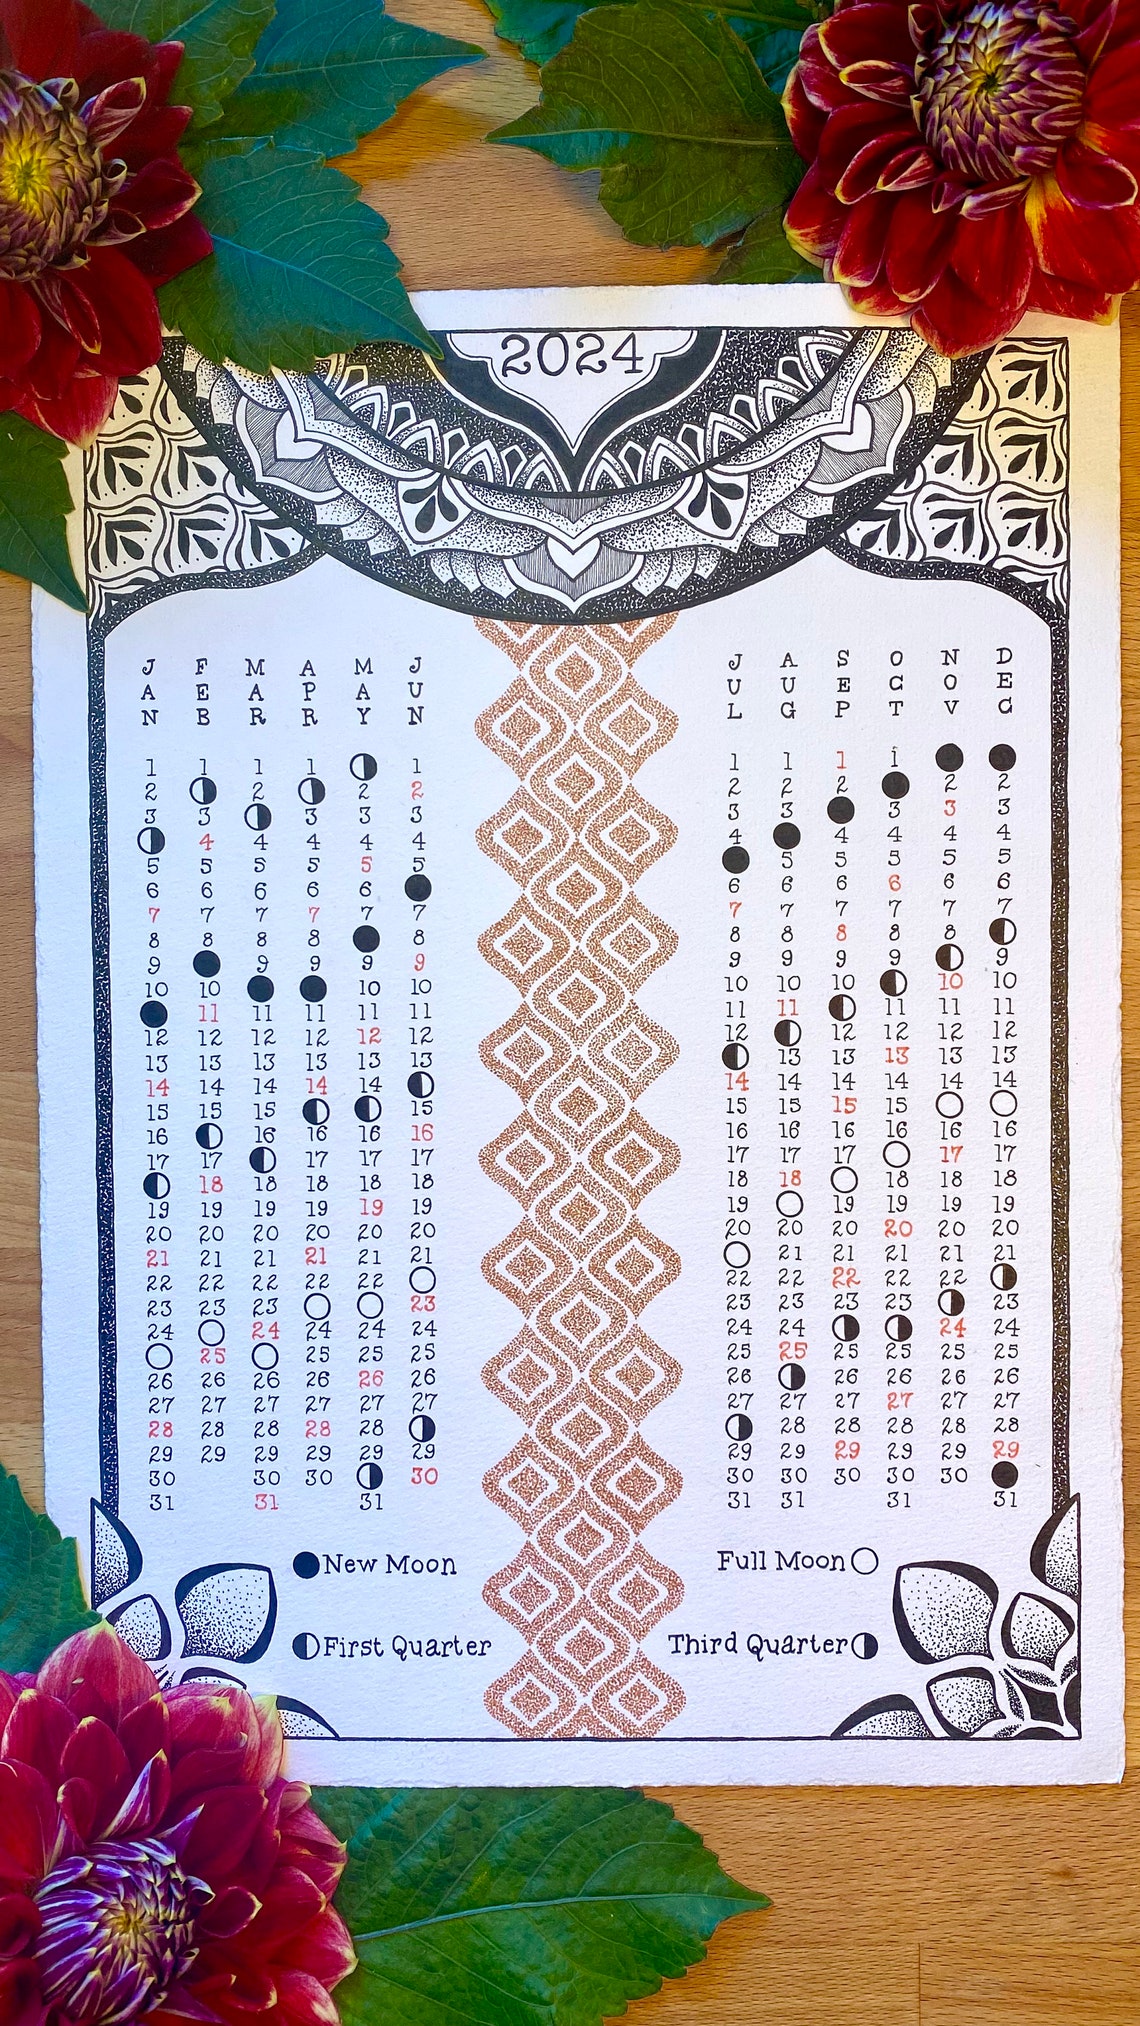 2024
JAN FEB MAR APR MAY JUN JUL AUG SEP OCT NOV DEC
1 1 1 1 1 1 1 1 1
2 2 2 2 2 2 2 2 2
3 3 3 3 3 3 3 3 3 3
4 4 4 4 4 4 4 4 4 4
5 5 5 5 5 5 5 5 5 5 5
6 6 6 6 6 6 6 6 6 6 6
7 7 7 7 7 7 7 7 7 7 7 7
8 8 8 8 8 8 8 8 8 8
9 9 9 9 9 9 9 9 9 9
10 10 10 10 10 10 10 10 10
11 11 11 11 11 11 11 11 11 11
12 12 12 12 12 12 12 12 12 12 12
13 13 13 13 13 13 13 13 13 13 13
14 14 14 14 14 14 14 14 14 14 14
15 15 15 15 15 15 15 15
16 16 16 16 16 16 16 16 16 16 16
17 17 17 17 17 17 17 17 17 17
18 18 18 18 18 18 18 18 18 18
19 19 19 19 19 19 19 19 19 19 19
20 20 20 20 20 20 20 20 20 20 20 20
21 21 21 21 21 21 21 21 21 21 21
22 22 22 22 22 22 22 22 22 22
23 23 23 23 23 23 23 23 23
24 24 24 24 24 24 24 24 24
25 25 25 25 25 25 25 25 25 25
26 26 26 26 26 26 26 26 26 26 26
27 27 27 27 27 27 27 27 27 27 27 27
28 28 28 28 28 28 28 28 28 28
29 29 29 29 29 29 29 29 29 29 29 29
30 30 30 30 30 30 30 30 30
31 31 31 31 31 31 31
New Moon Full Moon
First Quarter Third Quarter